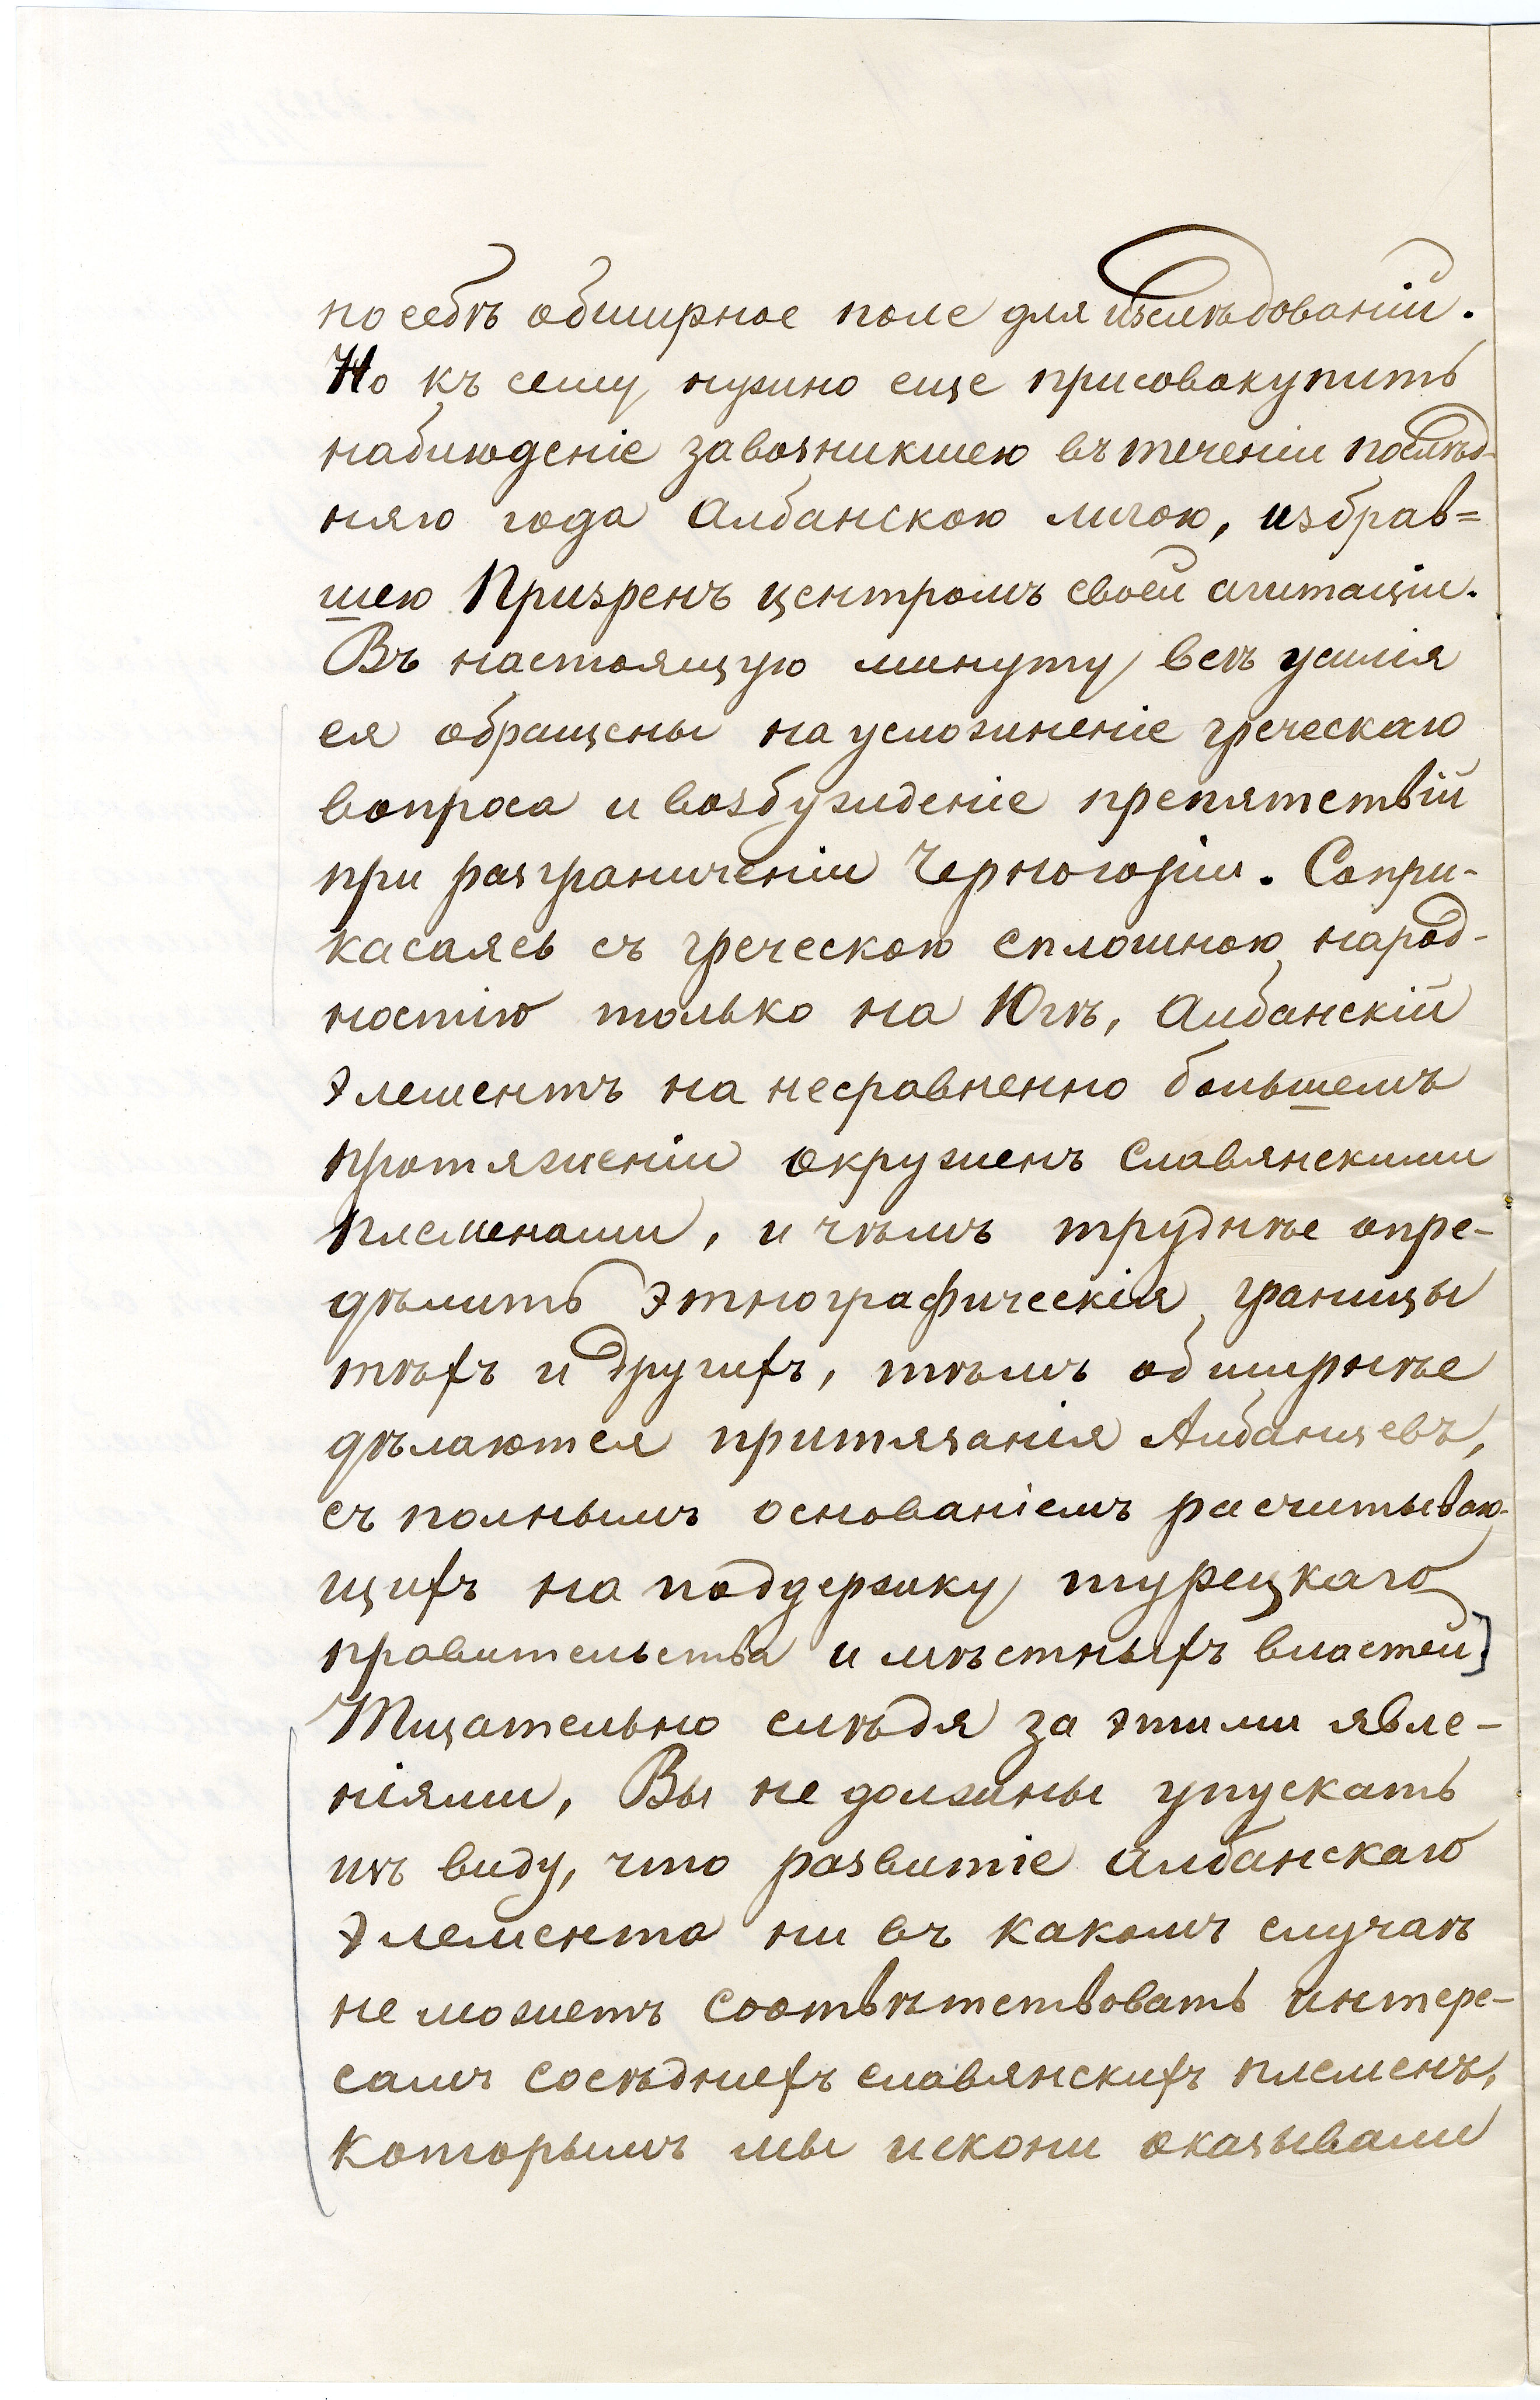 по себѣ обширное поле для изслѣдованій.
Но къ сему нужно еще присовокупить
наблюденіе за возникшею въ теченіи послѣд-
няго года Албанскою лигою, избрав=
шею Призренъ центромъ своей агитаціи.
Въ настоящую минуту всѣ усилія
ея обращены на усложненіе греческаго
вопроса и возбужденіе препятствій
при разграниченіи Черногоріи. Сопри-
касаясь съ греческою сплошною народ-
ностію только на Югѣ, Албанскій
элементъ на несравненно большемъ
протяженіи окруженъ Славянскими
племенами, и чѣмъ труднѣе опре-
дѣлить этнографическія границы
тѣхъ и другихъ, тѣмъ обширнѣе
дѣлаются притязанія Албанцевъ,
съ полнымъ основаніемъ расчитываю-
щихъ на поддержку турецкаго
правительства и мѣстныхъ властей]
Тщательно слѣдя за этими явле-
ніями, Вы не должны упускать
изъ виду, что развитіе албанскаго
элемента ни въ какомъ случаѣ
не можетъ соотвѣтствовать интере-
самъ сосѣднихъ славянскихъ племенъ,
которымъ мы искони оказывали